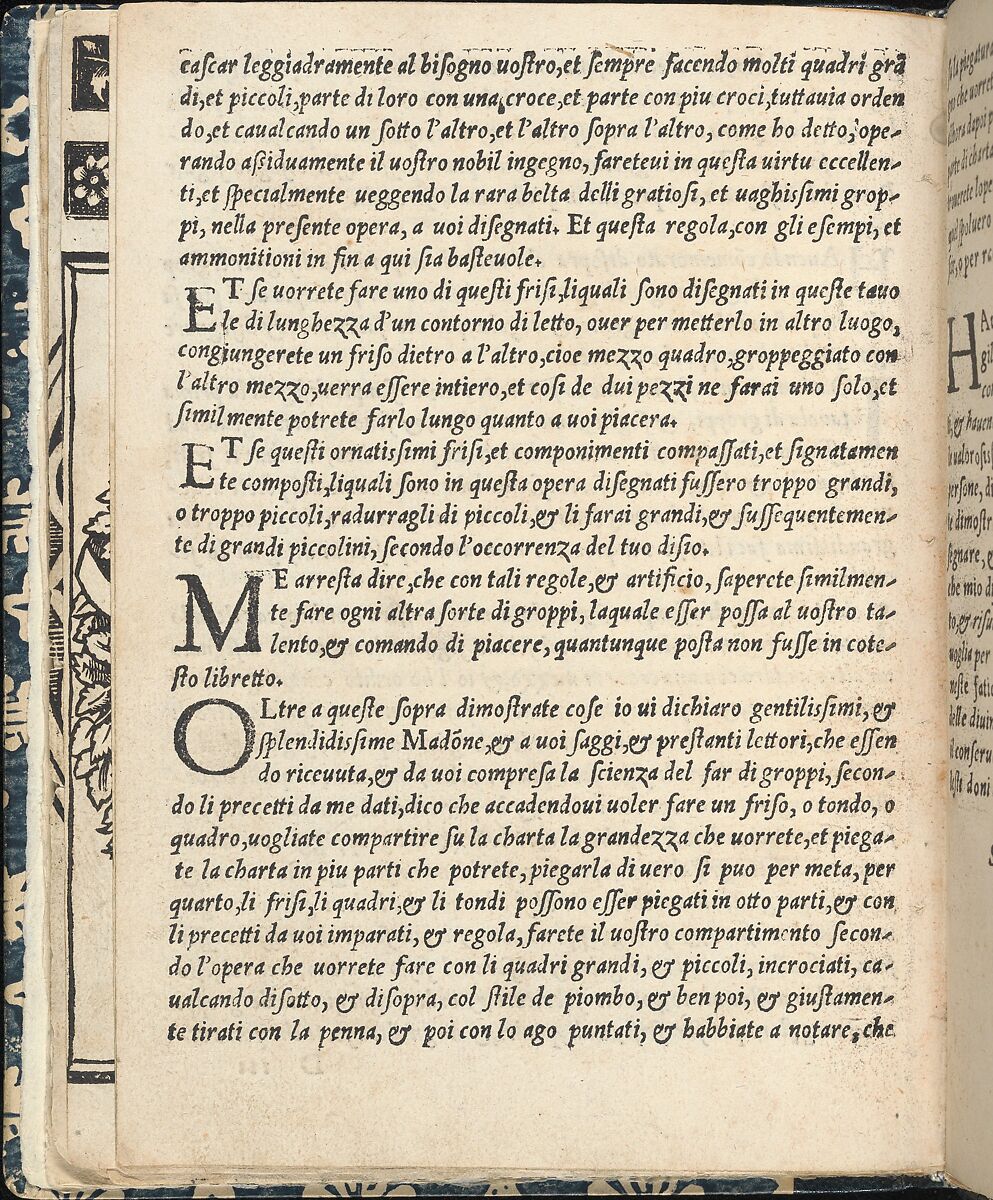 cascar leggiadramente al bisogno uostro,et sempre facendo molti quadri grã
di,et piccoli,parte di loro con una croce,et parte con piu croci,tuttauia orden
do,et caualcando un sotto l'altro,et l'altro sopra l'altro, come ho detto, ope-
rando aßiduamente il uostro nobil ingegno, fareteui in questa virtu eccellen-
ti,et specialmente ueggendo la rara belta delli gratiosi, et uaghissimi grop-
pi, nella presente opera, a uoi disegnati. Et questa regola,con gli esempi, et
ammonitioni in fin a qui sia basteuole.
ET se uorrete fare uno di questi frisi,liquali sono disegnati in queste tauo
le di lunghezza d'un contorno di letto, ouer per metterlo in altro luogo,
congiungerete un friso dietro a l'altro,cioe mezzo quadro,groppeggiato con
l'altro mezzo,uerra essere intiero,et cosi de dui pezzi ne farai uno solo,et
similmente potrete farlo lungo quanto a uoi piacera.
ET se questi ornatissimi frisi,et componimenti compassati,et signatamen
te composti,liquali sono in questa opera disegnati fussero troppo grandi,
o troppo piccoli,radurragli di piccoli,& li farai grandi,& sussequentemen-
te di grandi piccolini, secondo l'occorrenza del tuo disio.
ME arresta dire,che con tali regole,& artificio, saperete similmen-
te fare ogni altra sorte di groppi, laquale esser possa al uostro ta-
lento,& comando di piacere, quantunque posta non fusse in cote-
sto libretto.
OLtre a queste sopra dimostrate cose io ui dichiaro gentilissimi, &
splendidissime Madõne,& a uoi saggi,& prestanti lettori,che essen
do riceuuta,& da uoi compresa la scienza del far di groppi, secon-
do li precetti da me dati,dico che accadendoui uoler fare un friso, o tondo, o
quadro,uogliate compartire su la charta la grandezza che uorrete,et piega-
te la charta in piu parti che potrete, piegarla di uero si puo per meta, per
quarto,li frisi,li quadri,& li tondi possono esser piegati in otto parti,& con
li precetti da uoi imparati, & regola, farete il uostro compartimento secon-
do l'opera che uorrete fare con li quadri grandi, & piccoli, incrociati, ca-
ualcando disotto, & disopra, col stile de piombo, & ben poi, & giustamen-
te tirati con la penna, & poi con lo ago puntati, & habbiate a notare, che